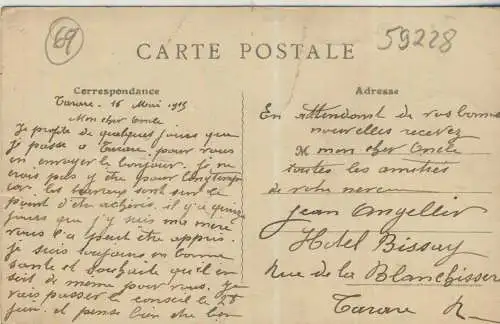 69
59228
CARTE POSTALE
Correspondance
Tarare, 16 Mai 1913
Mon cher Oncle
Je profite de quelques jours que
je passe a Tarare pour vous
en envoyer le bonjour. Je ne
crois pas y être pour longtemps
car les travaux sont sur le
point d'être achevés. il y a quinze
jours que j'y suis ma mère
vous l'a peut être appris.
je suis toujours en bonne
santé et souhaite qu'il en
soit de même pour vous. je
vais passer le conseil le 28
juin. et pense bien être bon
Adresse
En attendant de vos bonnes
nouvelles recevez
M mon cher Oncle
toutes les amitiés
de votre neveu
Jean Angellier
Hotel Bissay
Rue de la Blanchisserie
Tarare R